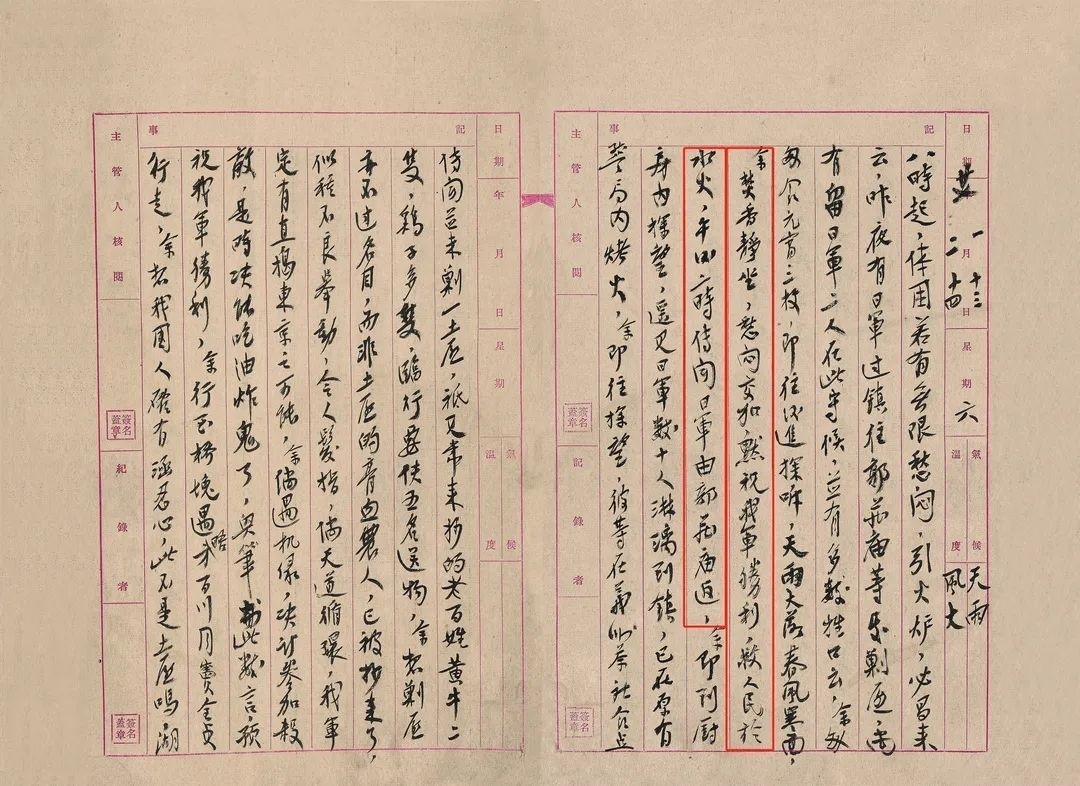 日期 月 日 星期六 氣候 天雨
廿 一 十三 溫度 風大
二 十四
記事
八時起，体用若有無限愁悶，引火炉，必昌来
云，昨夜有日軍过鎮往郭莊庙等处剿匪，尚
有留日軍二人在此守候，并有多数牲口云，余
食元宵三枚，即往 進探听，天雨大落春風寒雨，
余焚香靜坐，愁闷交加，默祝我軍勝利，救人民於
水火，午四六時待闻日軍由郭莊庙迫，余即到厨
房内探望，遥见日軍数十人淋漓到鎮，已在原有
警局内烤火，余即往探望，彼等在義 茶社合点
主管人核閱
簽名蓋章
記錄者
簽名蓋章
日期 年 月 日 星期 氣候 溫度
記事
侍闻並未剿一土匪，祗又帶来抄的老百姓黄牛二
隻，鸡子多隻，臨行要伕五名送物，余想剿匪
亦不过名目，而非土匪的膏血農人，已被抄来了，
似種不良舉動，令人髮指，倘天道循環，我軍
定有直搗東京之可能，余倘遇机緣，决計参加殺
敵，是時决能吃油炸鬼了，與筆書此数言，預
祝我軍勝利，余行至橋塊遇 百川同 全貞
晤
行走，余想我国人確有涵忍心，此不是土匪嗎，湖
主管人核閱
簽名蓋章
紀錄者
簽名蓋章